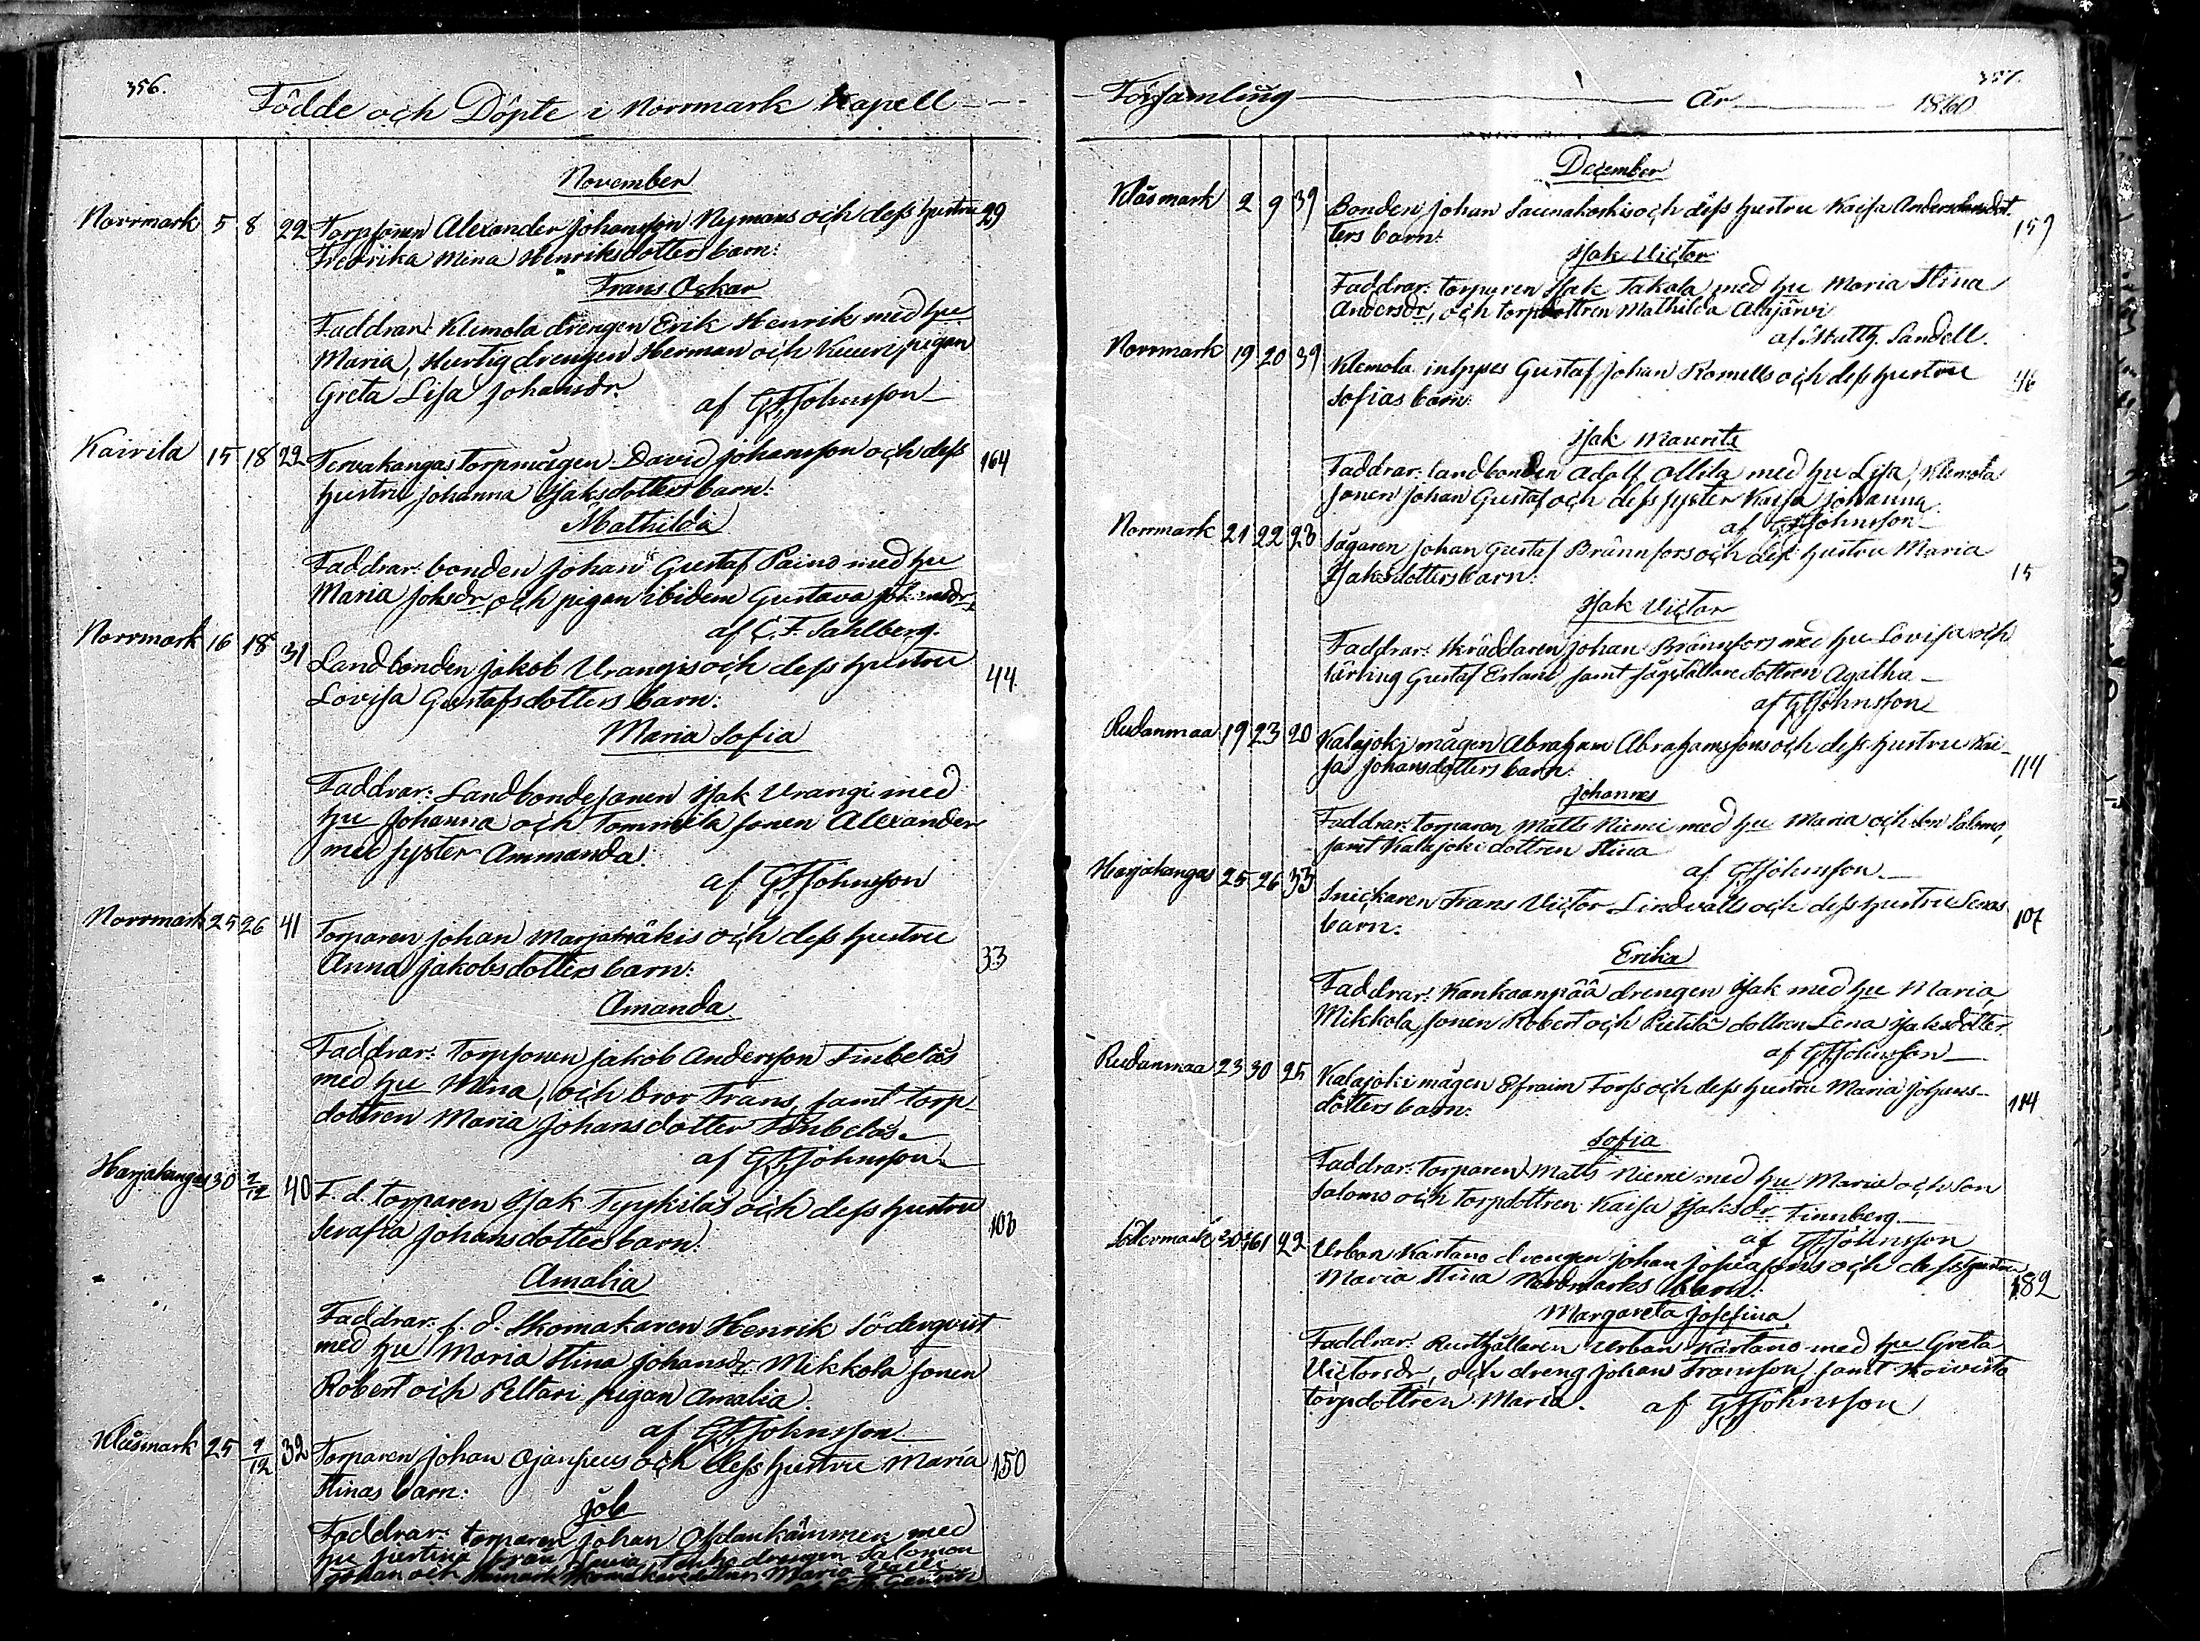 356.
Födde och Döpte i Norrmark Kapell
November
Norrmark 5 8 22 Torpsonen Alexander Johansson Nymans och dess hustru 29
Fredrika Mina Henriksdotters barn:
Frans Oskar
Faddrar: Klemola drengen Erik Henrik med hu
Maria, Hurtig drengen Herman och Kuuri pigan
Greta Lisa Johansdr.
af GFJohnsson
Kairila 15 18 22 Tervakangas Torpmågen David Johansson och dess 164
hustru Johanna Isaksdotters barn:
Mathilda
Faddrar: bonden Johan Gustaf Paino med hu
Maria Johsdr och pigan ibidem Gustava
af C. F. Sahlberg.
Norrmark 16 18 31 Landbonden Jakob Vrangis och dess hustru 44
Lovisa Gustafsdotters barn:
Maria Sofia
Faddrar: Landbondesonen Isak Vrangi med
hu Johanna och Tommila sonen Alexander
med syster Ammanda.
af GFJohnsson
Norrmark 25 26 41 Torparen Johan Marjamäkis och dess hustru 33
Anna Jakobsdotters barn:
Amanda
Faddrar: Torpsonen Jakob Andersson Finbeläs
med hu Mina, och bror Frans, samt torp-
dottren Maria Johansdotter Finbeläs.
af GFJohnsson
Harjakangas 30 2/12 40 F. d. torparen Isak Tyykiläs och dess hustru 103
Serafia Johansdotters barn:
Amalia
Faddrar: f. d. Skomakaren Henrik Söderqvist
med hu Maria Stina Johansdr. Mikkola sonen
Robert och Peltari pigan Amalia.
af GFJohnsson
Klåsmark 25 2/12 32 Torparen Johan Ojansuus och dess hustru Maria 150
Stinas barn:
Job
Faddrar: torparen Johan med
hu Justina drengen Salomon
Johan och Maria
357.
Församling År 1860
December
Klåsmark 2 9 39 Bonden Johan Saunakoskis och dess hustru Kaisa Andersdot- 157
ters barn:
Isak Victor
Faddrar: torparen Isak Takala med hu Maria Stina
Andersdr, och torpdottren Mathilda Alajärvi
af Matth. Sandell.
Norrmark 19 20 39 Klemola inhyses Gustaf Johan Romells och dess hustru 46
Sofias barn:
Isak Maurits
Faddrar: landbonden Adolf Ollila med hu Lisa, Klemola
sonen Johan Gustaf och dess syster Kaisa Johanna.
af GFJohnsson
Norrmark 21 22 23 Sågaren Johan Gustaf Brännfors och dess hustru Maria 15
Isaksdotters barn:
Isak Victor
Faddrar: Skräddaren Johan Brännfors med hu Lovisa och
lärling Gustaf Erland, samt dottren Agatha
af GFJohnsson
Rudanmaa 19 23 20 Kalajoki mågen Abraham Abrahamssons och dess hustru Kai- 114
sa Johansdotters barn:
Johannes
Faddrar: torparen Matts Niemi med hu Maria och son Salomo,
samt Kalajoki dottren Stina
af GFJohnsson.
Harjakangas 25 26 33 Snickaren Frans Victor Lindvalls och dess hustru Lenas 107
barn:
Erika
Faddrar: Kankaanpää drengen Isak med hu Maria
Mikkola sonen Robert och Pietilä dottren Lena Isaksdotter
af GFJohnsson
Rudanmaa 23 30 25 Kalajoki mågen Efraim Forss och dess hustru Maria Johans- 114
dotters barn:
Sofia
Faddrar: Torparen Matts Niemi med hu Maria och son
Salomo och torpdottren Kaisa Isaksdr Finnberg.
af GFJohnsson
Södermark 30 22 Urban Kartano drengen Johan Josefssons och dess hustru 182
Maria Stina Nordmarks barn:
Margareta Josefina
Faddrar: Rusthållaren Urban Kartano med hu Greta
Victorsdr, och dreng Johan Fransson, samt Koivisto
torpdottren Maria. af GFJohnsson